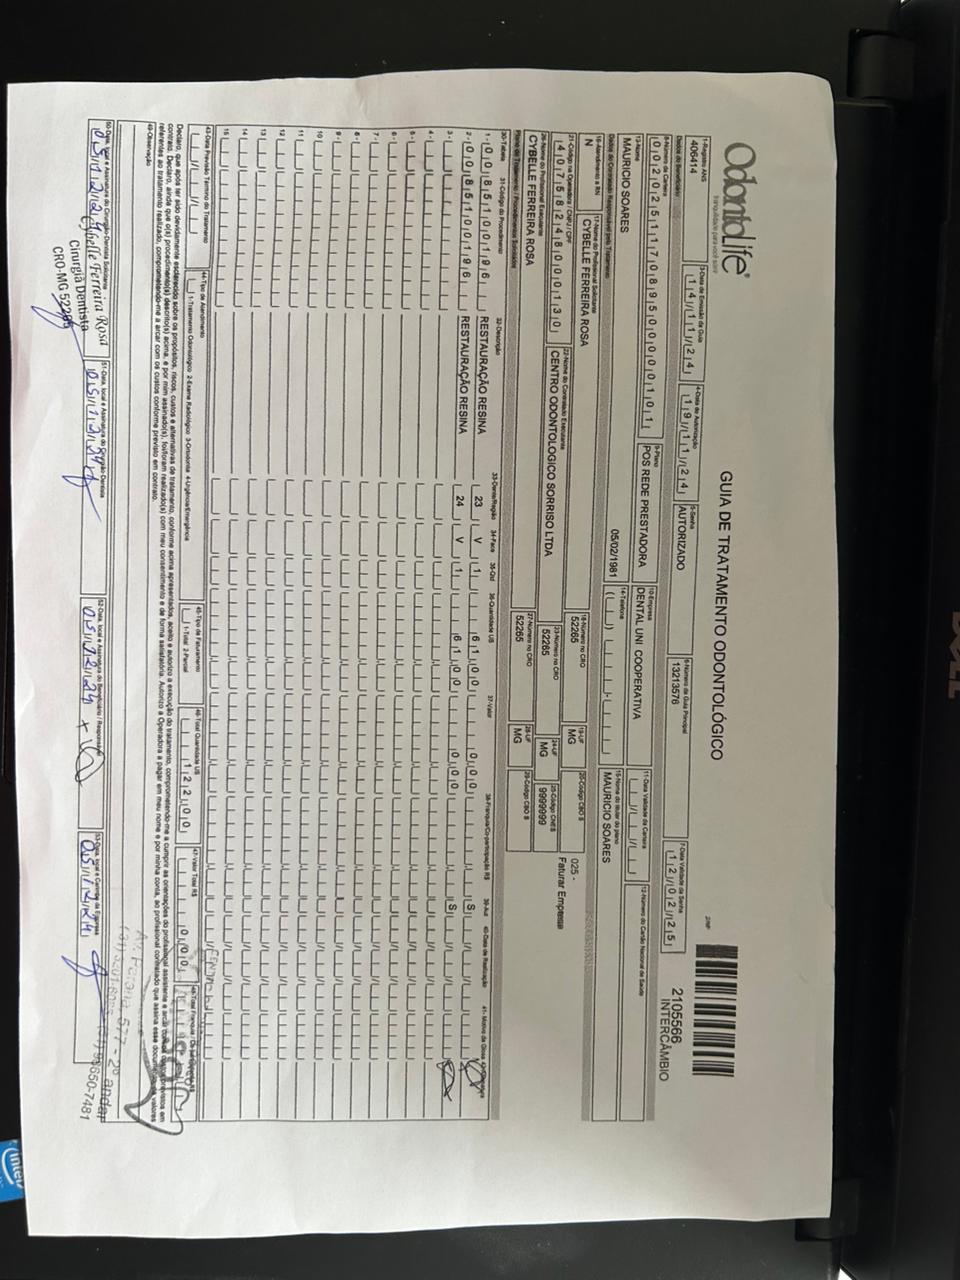 OdontoLife®
tranquilidade para você
GUIA DE TRATAMENTO ODONTOLÓGICO
2105566
INTERCÂMBIO
1-Registro ANS
406414
3-Data de Emissão da Guia
14/11/24
4-Data de Autorização
19/11/24
5-Senha
AUTORIZADO
6-Número da Guia Principal
13213576
7-Data Validade da Senha
12/02/25
Dados do Beneficiário
8-Número da Carteira
00202511170895000001 01
9-Plano
POS REDE PRESTADORA
10-Empresa
DENTAL UNI COOPERATIVA
11-Data Validade da Carteira
12-Número do Cartão Nacional de Saúde
13-Nome
MAURICIO SOARES
05/02/1981
14-Telefone
15-Nome do titular do plano
MAURICIO SOARES
Dados do Contratado Responsável pelo Tratamento
16-Atendimento a RN
N
17-Nome do Profissional Solicitante
CYBELLE FERREIRA ROSA
18-Número no CRO
52265
19-UF
MG
20-Código CBO S
025 -
Faturar Empresa
21-Código na Operadora / CNPJ / CPF
40758248000130
22-Nome do Contratado Executante
CENTRO ODONTOLOGICO SORRISO LTDA
23-Número no CRO
52265
24-UF
MG
25-Código CNES
9999999
26-Nome do Profissional Executante
CYBELLE FERREIRA ROSA
27-Número no CRO
52265
28-UF
MG
29-Código CBO S
Plano de Tratamento / Procedimentos Solicitados
30-Tabela 31-Código do Procedimento 32-Descrição 33-Dente/Região 34-Face 35-Qtd 36-Quantidade US 37-Valor 38-Franquia/Co-participação R$ 39-Aut 40-Data de Realização 41-Motivo da Glosa
1- 00 85100196 RESTAURAÇÃO RESINA 23 V 1 61,00 0,00 S
2- 00 85100196 RESTAURAÇÃO RESINA 24 V 1 61,00 0,00 S
3-
4-
5-
6-
7-
8-
9-
10-
11-
12-
13-
14-
15-
43-Data Previsão Término do Tratamento
44-Tipo de Atendimento
1-Tratamento Odontológico 2-Exame Radiológico 3-Ortodontia 4-Urgência/Emergência
45-Tipo de Faturamento
1-Total 2-Parcial
46-Total Quantidade US
122,00
47-Valor Total R$
0,00
Declaro, que após ter sido devidamente esclarecido sobre os propósitos, riscos, custos e alternativas de tratamento, conforme acima apresentados, aceito e autorizo a execução do tratamento, comprometendo-me a cumprir as orientações do profissional assistente e arcar com os custos previstos em
contrato. Declaro, ainda que o(s) procedimento(s) descrito(s) acima, e por mim assinado(s), foi/foram realizado(s) com meu consentimento e de forma satisfatória. Autorizo a Operadora a pagar em meu nome e por minha conta, ao profissional contratado que assina esse documento, os valores
referentes ao tratamento realizado, comprometendo-me a arcar com os custos conforme previsto em contrato.
49-Observação
50-Data, local e Assinatura do Cirurgião-Dentista Solicitante
05/12/24
Cybelle Ferreira Rosa
Cirurgiã Dentista
CRO-MG 52265
51-Data, local e Assinatura do Cirurgião-Dentista
05/12/24
52-Data, local e Assinatura do Beneficiário / Responsável
05/12/24
53-Data, local e Carimbo da Empresa
05/12/24
DELL
intel